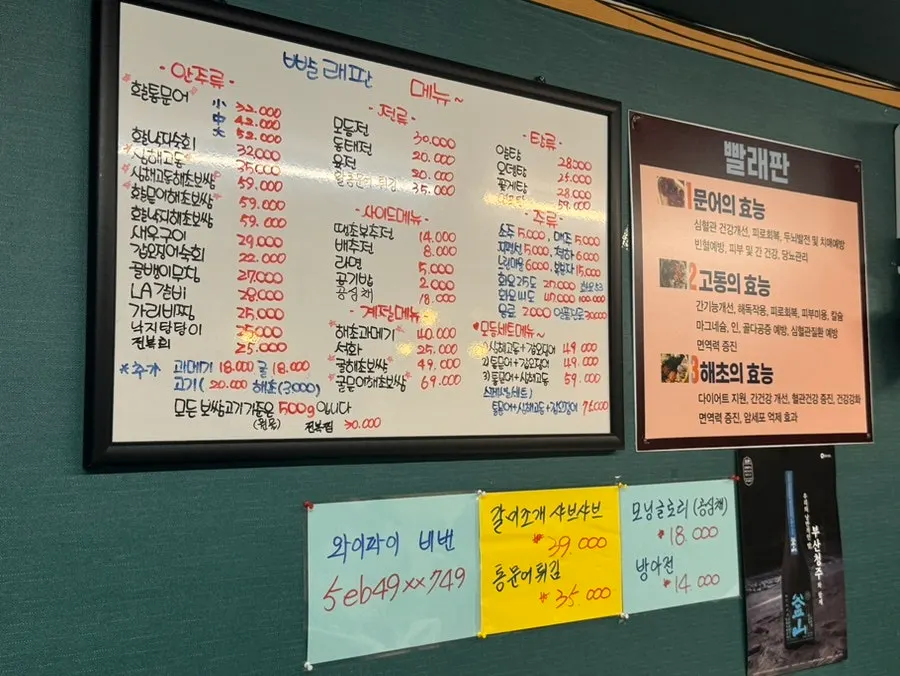 빨래판 메뉴~
-안주류-
활통문어 小 32.000
中 42.000
大 52.000
활낙지숙회 32.000
삼해고동 35.000
삼해고동해초보쌈 59.000
활문어해초보쌈 59.000
활낙지해초보쌈 59.000
새우구이 29.000
갑오징어숙회 22.000
골뱅이무침 27.000
LA갈비 28.000
가리비찜 25.000
낙지탕탕이 25.000
전복회 25.000
*추가 과메기 18.000 굴 18.000
고기( 20.000 해초(3.000)
모든보쌈고기가들은 500g입니다
(원육) 전복찜 30.000
-전류-
모듬전 30.000
동태전 20.000
육전 20.000
활통문어 튀김 35.000
-사이드메뉴-
땡초부추전 14.000
배추전 8.000
라면 5.000
공기밥 2.000
공심채 18.000
-계절메뉴-
해초과메기 40.000
석화 25.000
굴해초보쌈 49.000
굴문어해초보쌈 69.000
-탕류-
알탕 28.000
오뎅탕
꽃게탕 28.000
59.000
-주류-
소주 5.000, 맥주 5.000
5.000 청하 6.000
느린마을 6.000, 복분자 15.000
화요25도
화요41도 40.000 100.000
음료 2000 30000
♥모듬세트메뉴~
1)삼해고동+갑오징어 49.000
2)통문어+갑오징어 49.000
3)통문어+삼해고동 59.000
스페셜(세트)
통문어+삼해고동+갑오징어
빨래판
1 문어의 효능
심혈관 건강개선, 피로회복, 두뇌발전 및 치매예방
빈혈예방, 피부 및 간 건강, 당뇨관리
2 고동의 효능
간기능개선, 해독작용, 피로회복, 피부미용, 칼슘
마그네슘, 인, 골다공증 예방, 심혈관질환 예방
면역력 증진
3 해초의 효능
다이어트 지원, 간건강 개선, 혈관건강 증진, 건강강화
면역력 증진, 암세포 억제 효과
와이파이 비번
5eb49××749
갈미조개 샤브샤브
₩39.000
통문어튀김
₩35.000
모닝글로리 (공심채)
₩18.000
방아전
₩14.000
부산청주